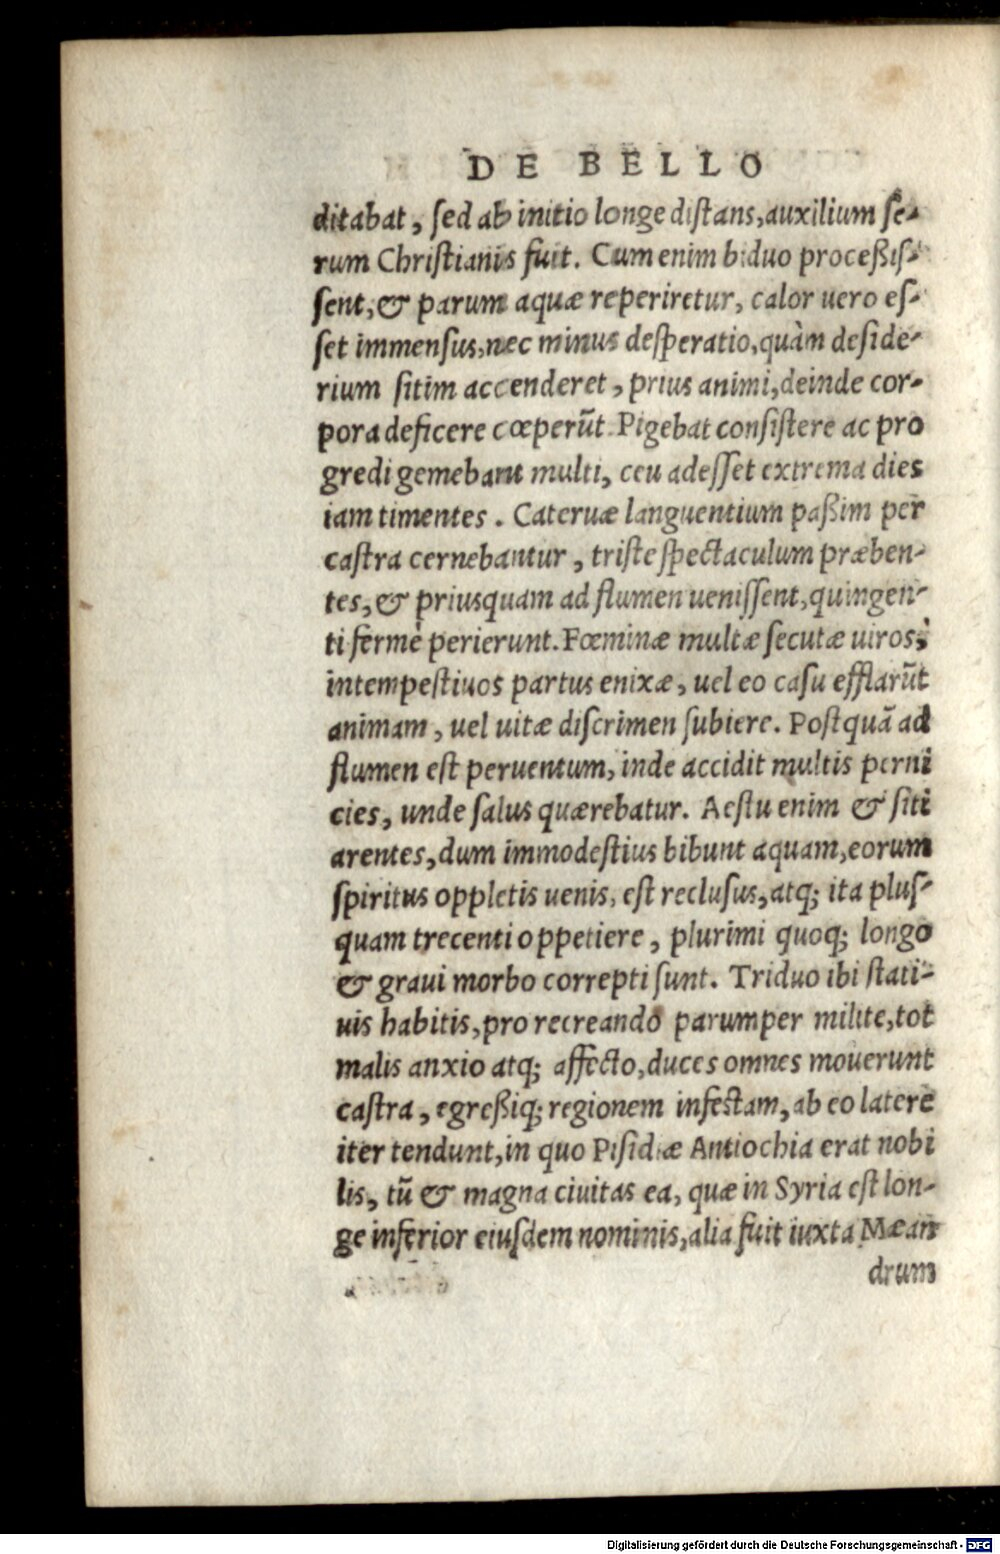 DE BELLO
ditabat, sed ab initio longe distans, auxilium se-
rum Christianis fuit. Cum enim biduo proceßis-
sent, & parum aquæ reperiretur, calor uero es-
set immensus, nec minus desperatio, quàm deside-
rium sitim accenderet, prius animi, deinde cor-
pora deficere cœperūt. Pigebat consistere ac pro
gredi gemebant multi, ceu adesset extrema dies
iam timentes. Cateruæ languentium paßim per
castra cernebantur, triste spectaculum præben-
tes, & priusquam ad flumen uenissent, quingen-
ti fermè perierunt. Fœminæ multæ secutæ uiros,
intempestiuos partus enixæ, uel eo casu efflarūt
animam, uel uitæ discrimen subiere. Postquā ad
flumen est peruentum, inde accidit multis perni
cies, unde salus quærebatur. Aestu enim & siti
arentes, dum immodestius bibunt aquam, eorum
spiritus oppletis uenis, est reclusus, atq; ita plus-
quam trecenti oppetiere, plurimi quoq; longo
& graui morbo correpti sunt. Triduo ibi stati-
uis habitis, pro recreando parumper milite, tot
malis anxio atq; affecto, duces omnes mouerunt
castra, egreßiq; regionem infectam, ab eo latere
iter tendunt, in quo Pisidiæ Antiochia erat nobi
lis, tū & magna ciuitas ea, quæ in Syria est lon-
ge inferior eiusdem nominis, alia fuit iuxta Mæan
drum
Digitalisierung gefördert durch die Deutsche Forschungsgemeinschaft - DFG